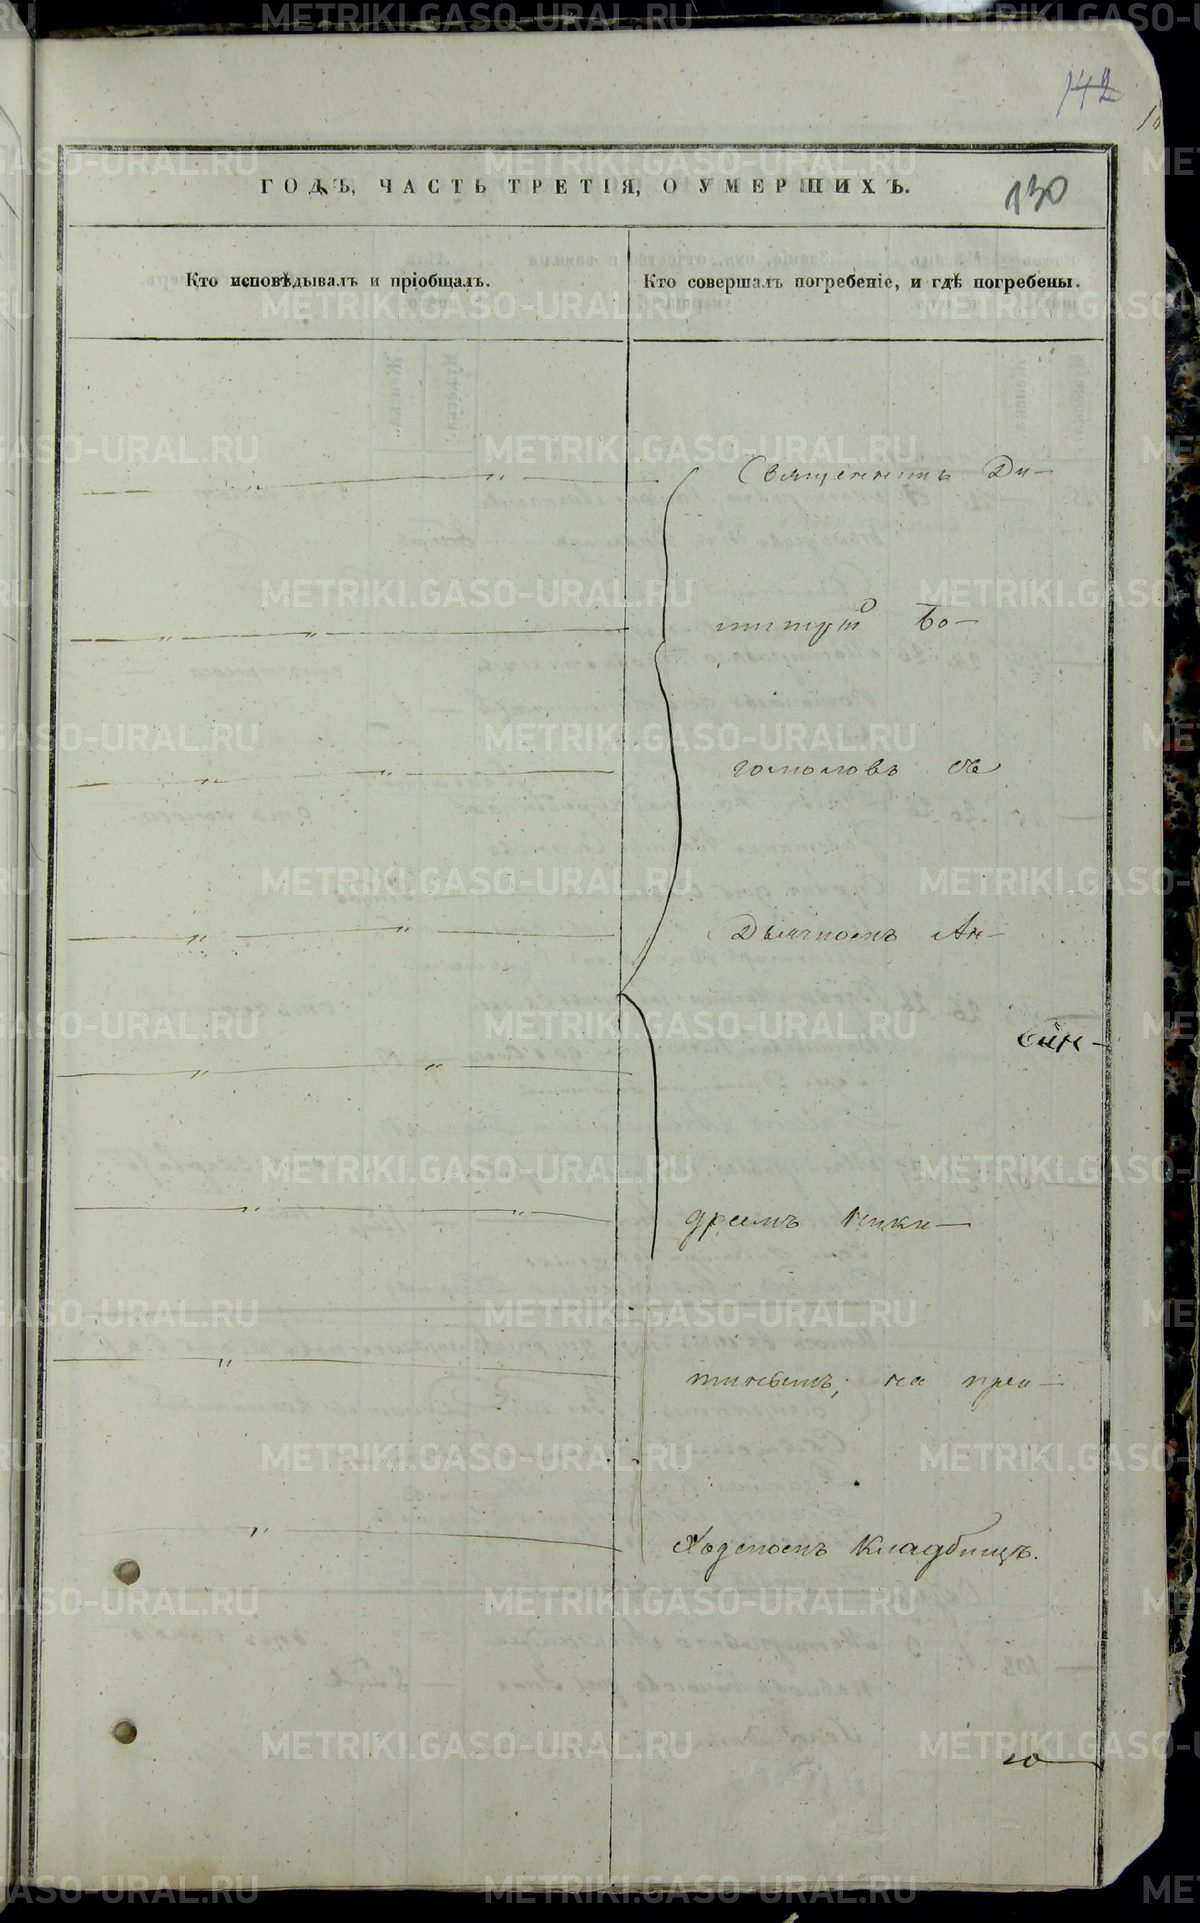 142
ГОДЪ, ЧАСТЬ ТРЕТІЯ, О УМЕРШИХЪ.
130
Кто исповѣдывалъ и пріобщалъ.
Кто совершалъ погребеніе, и гдѣ погребены.
Священникъ Ди-
митрій Бо-
гомоловъ съ
Дьячкомъ Ан-
дреемъ Ники-
тинымъ; на при-
ходскомъ кладбищѣ.
METRIKI.GASO-URAL.RU